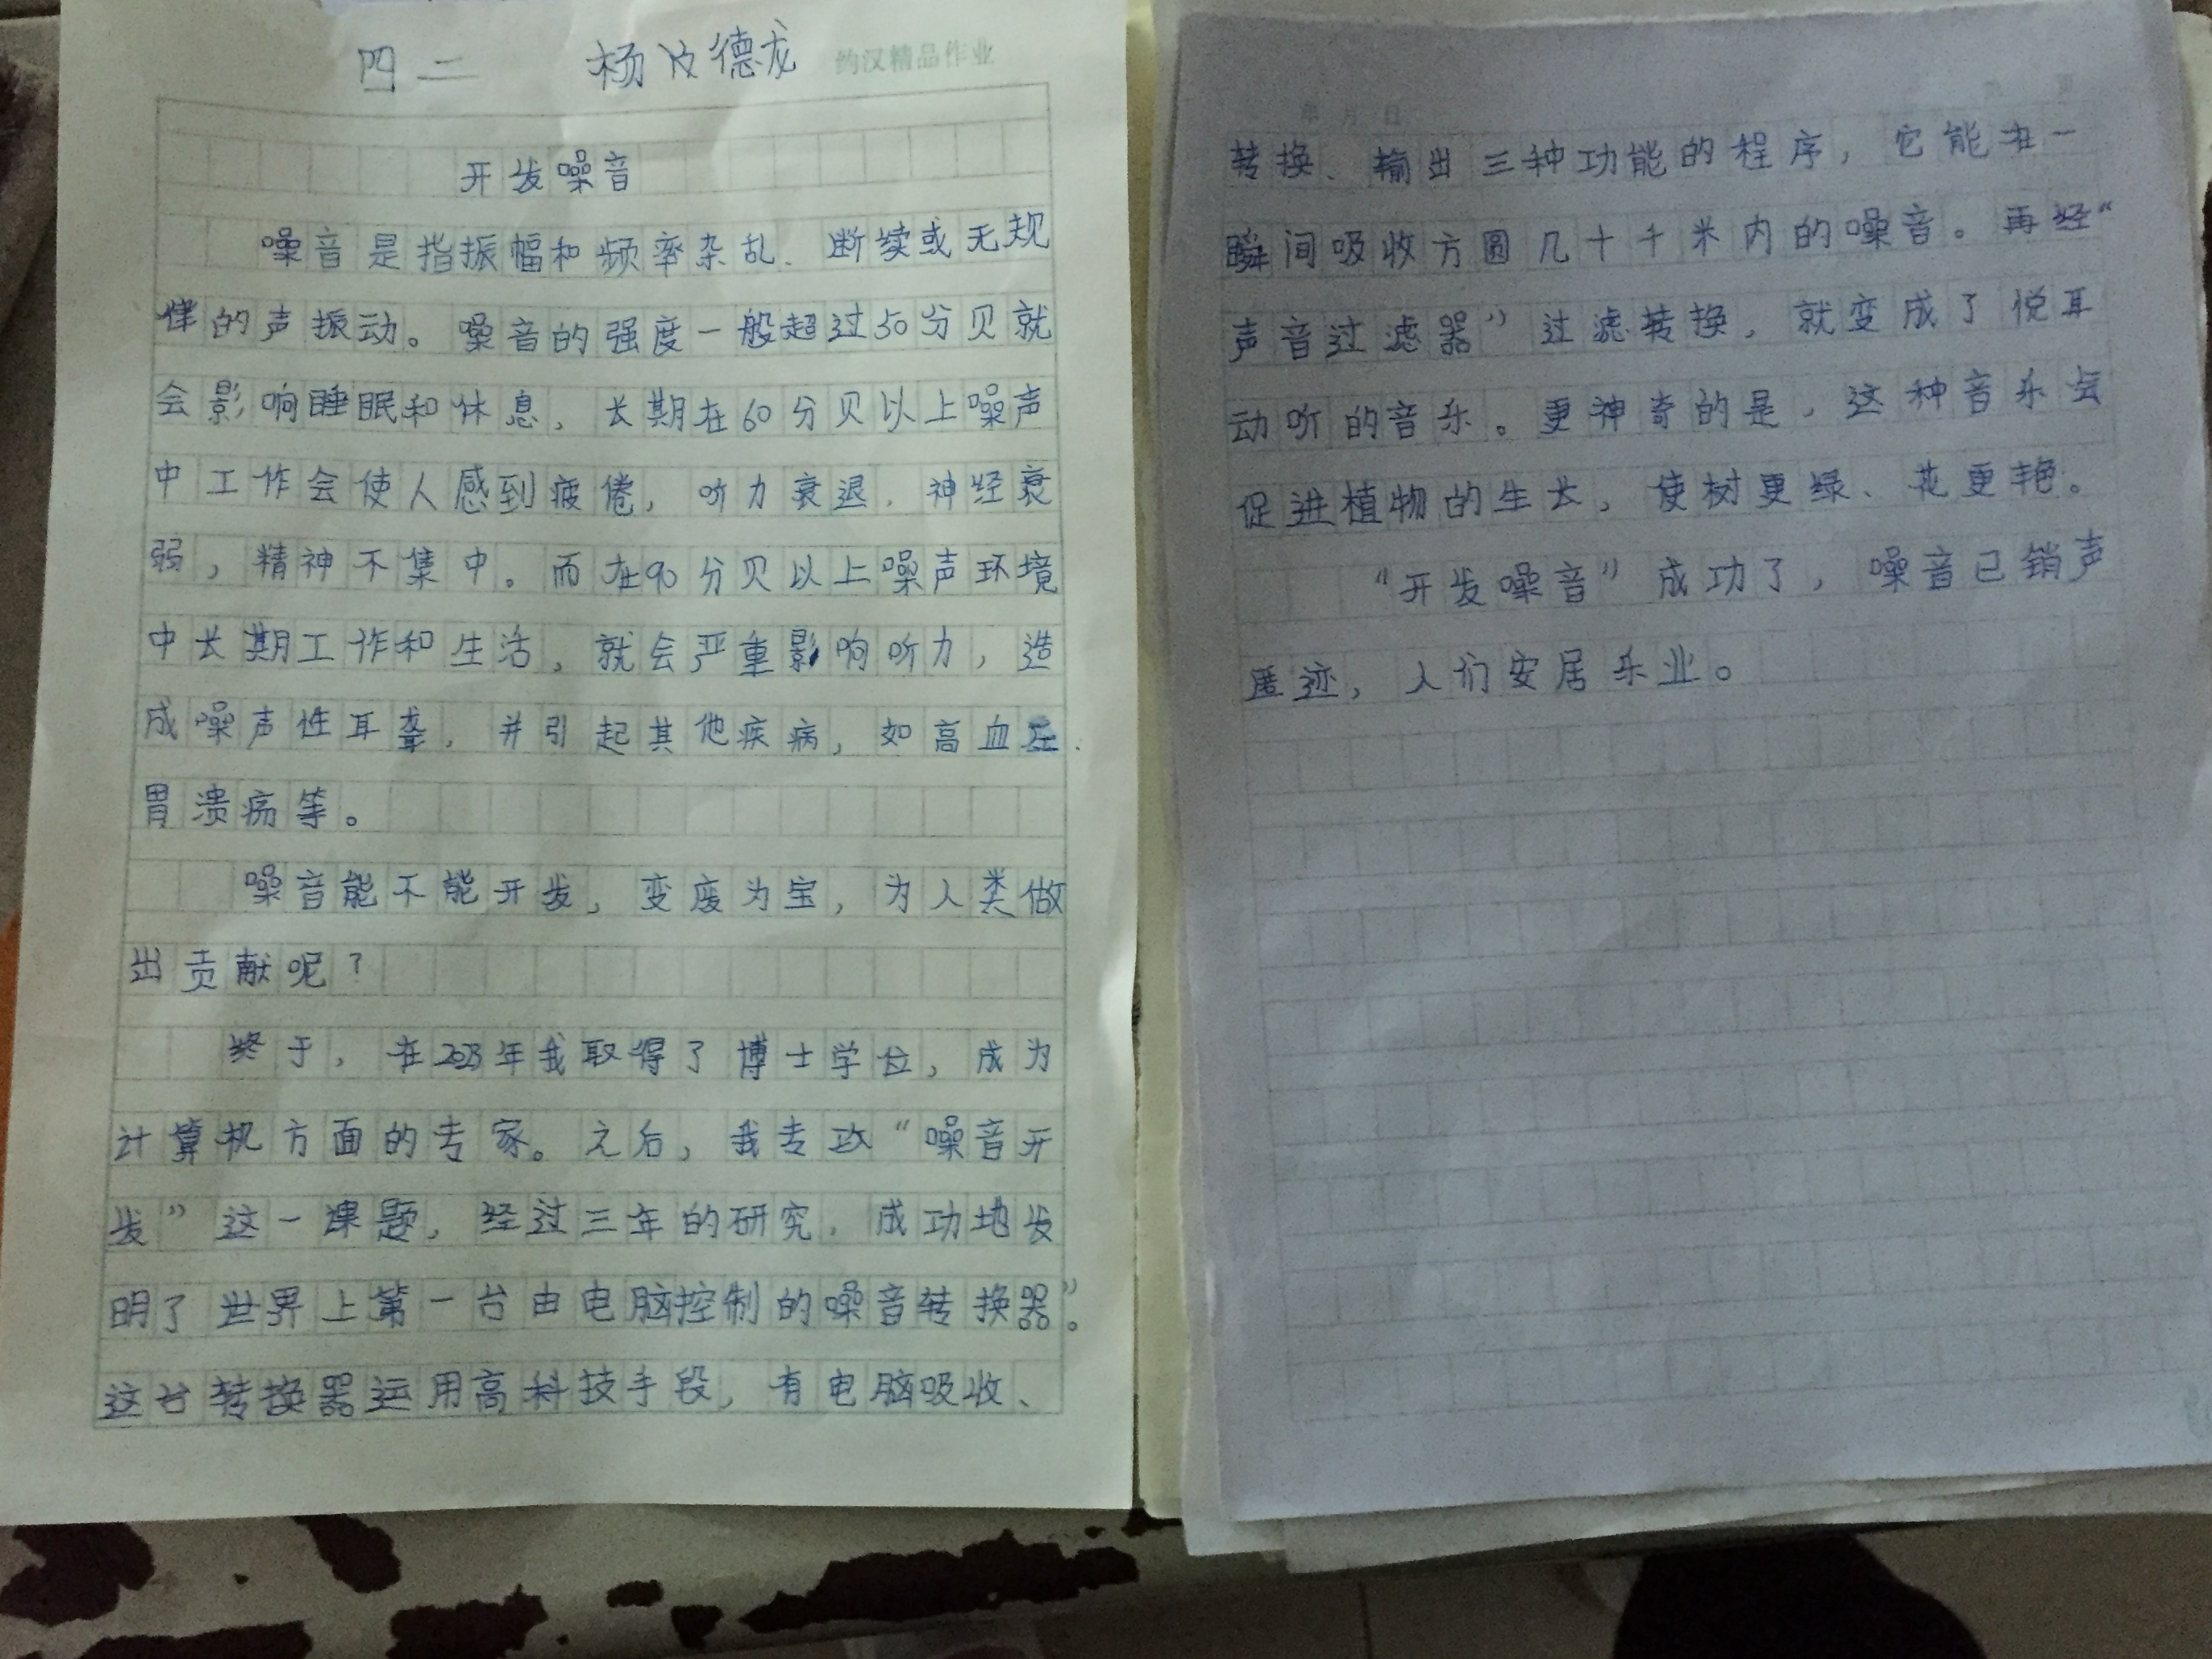 四二 杨皮德龙 约汉精品作业
开发噪音
噪音是指振幅和频率杂乱、断续或无规
律的声振动。噪音的强度一般超过50分贝就
会影响睡眠和休息,长期在60分贝以上噪声
中工作会使人感到疲倦,听力衰退,神经衰
弱,精神不集中。而在90分贝以上噪声环境
中长期工作和生活,就会严重影响听力,造
成噪声性耳聋,并引起其他疾病,如高血压、
胃溃疡等。
噪音能不能开发,变废为宝,为人类做
出贡献呢?
终于,在2023年我取得了博士学位,成为
计算机方面的专家。之后,我专攻“噪音开
发”这一课题,经过三年的研究,成功地发
明了世界上第一台由电脑控制的噪音转换器”。
这台转换器运用高科技手段,有电脑吸收、
年 月 日
转换、输出三种功能的程序,它能在一
瞬间吸收方圆几十千米内的噪音。再经“
声音过滤器”过滤转换,就变成了悦耳
动听的音乐。更神奇的是,这种音乐会
促进植物的生长,使树更绿、花更艳。
“开发噪音”成功了,噪音已销声
匿迹,人们安居乐业。